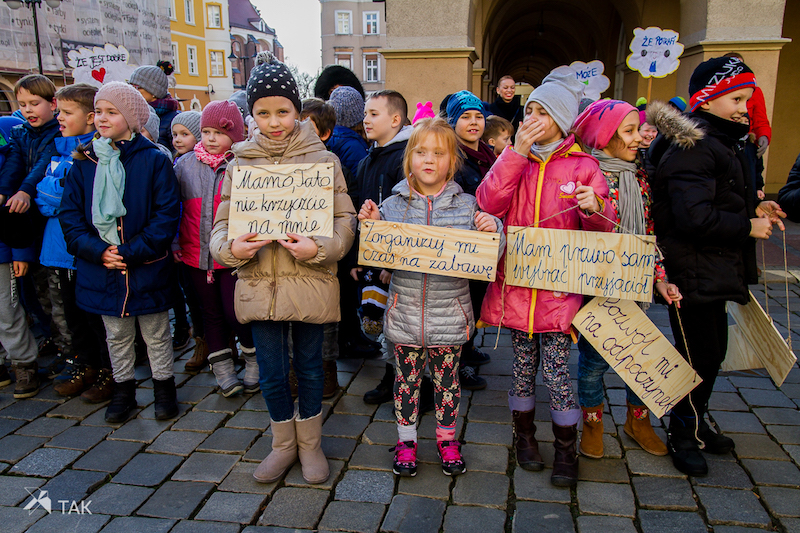 ŻE JEST DOBRE
ŻE POTNI
MOŻE
Mamo, Tato
nie krzyczcie
na mnie
Zorganizuj mi
czas na zabawę
Mam prawo
wybrać przyjaciół
Pozwól mi
na odpoczynek
TAK